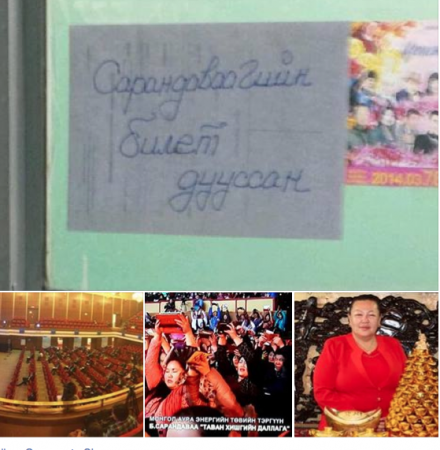 Сарандаваагийн
билет
дууссан
2014.03.
МОНГОЛ АУРА ЭНЕРГИЙН ТӨВИЙН ТЭРГҮҮН
Б.САРАНДАВАА "ТАВАН ХИШГИЙН ДАЛЛАГА"